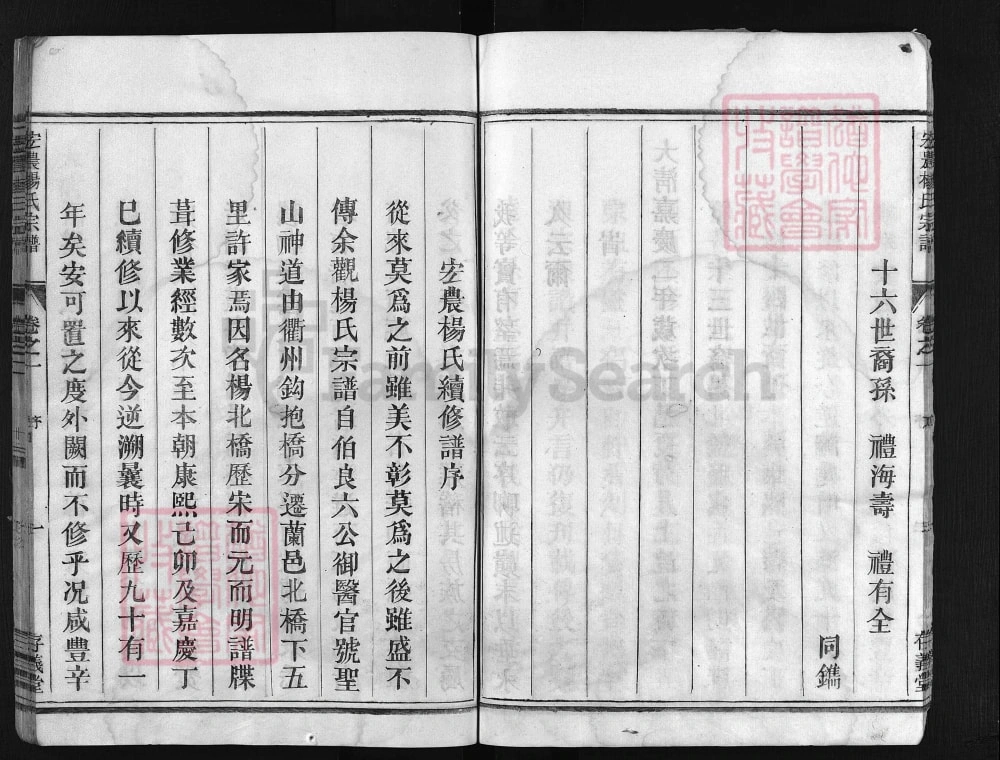 十六世裔孫　禮海壽　禮有全
同鐫
宏農楊氏宗譜
卷之一
序
存義堂
宏農楊氏續修譜序
從來莫爲之前雖美不彰莫爲之後雖盛不
傳余觀楊氏宗譜自伯良六公御醫官號聖
山神道由衢州鈎抱橋分遷蘭邑北橋下五
里許家焉因名楊北橋歷宋而元而明譜牒
葺修業經數次至本朝康熙己卯及嘉慶丁
巳續修以來從今逆溯曩時又歷九十有一
年矣安可置之度外闕而不修乎况咸豐辛
宏農楊氏宗譜
卷之一
序
一
存義堂
FamilySearch